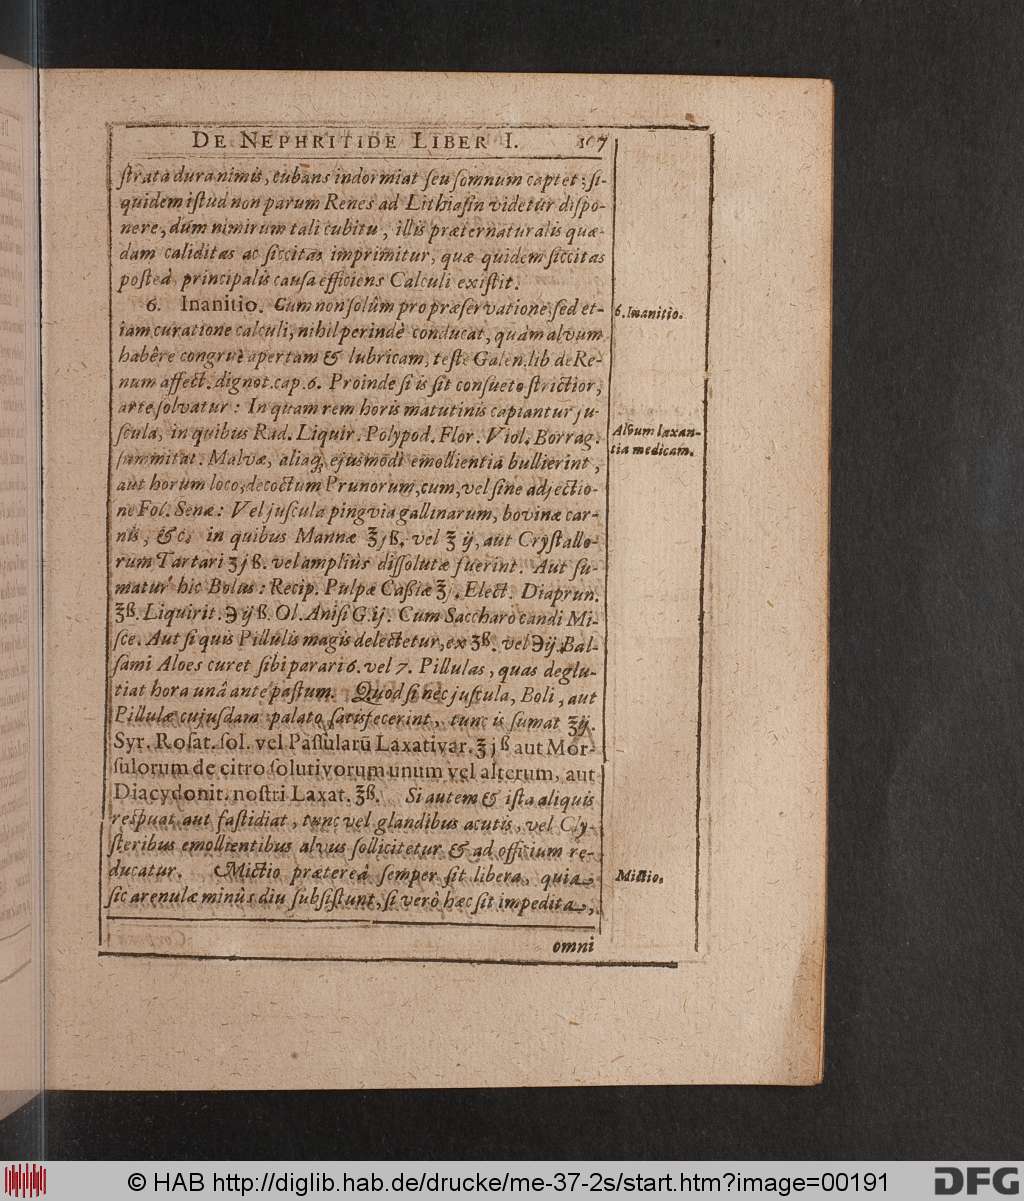 DE NEPHRITIDE LIBER I. 107
strata dura nimis, cubans indormiat seu somnum captet: si-
quidem istud non parum Renes ad Lithiasin videtur dispo-
nere, dum nimirum tali cubitu, illis præternaturalis quæ-
dam caliditas ac siccitas imprimitur, quæ quidem siccitas
posteà principalis causa efficiens Calculi existit.
6. Inanitio. Cum non solûm pro præservatione, sed et-
iam curatione calculi, nihil perindè conducat, quàm alvum
habêre congruè apertam & lubricam, teste Galen. lib de Re-
num affect. dignot. cap. 6. Proinde si is sit consueto strictior,
arte solvatur: In quam rem horis matutinis capiantur ju-
scula, in quibus Rad. Liquir. Polypod. Flor. Viol. Borrag.
summitat. Malvæ, aliaq; ejusmodi emollientia bullierint,
aut horum loco, decoctum Prunorum, cum, vel sine adjectio-
ne Fol. Senæ: Vel juscula pingvia gallinarum, bovinæ car-
nis, &c. in quibus Mannæ ℥jß. vel ℥ij, aut Crystallo-
rum Tartari ʒjß. vel amplius dissolutæ fuerint. Aut su-
matur hic Bolus: Recip. Pulpæ Caßiæ ℥j. Elect. Diaprun.
℥ß. Liquirit. ℈ijß. Ol. Anisi G. ij. Cum Saccharo candi Mi-
sce. Aut si quis Pillulis magis delectetur, ex ʒß. vel ℈ij. Bal-
sami Aloes curet sibi parari 6. vel 7. Pillulas, quas deglu-
tiat hora unâ ante pastum. Quod si nec juscula, Boli, aut
Pillulæ cujusdam palato satisfecerint, tunc is sumat ℥ij.
Syr. Rosat. sol. vel Passularũ Laxativar. ℥jß aut Mor-
sulorum de citro solutivorum unum vel alterum, aut
Diacydonit. nostri Laxat. ℥ß. Si autem & ista aliquis
respuat aut fastidiat, tunc vel glandibus acutis, vel Cly-
steribus emollientibus alvus sollicitetur & ad officium re-
ducatur. Mictio prætereà semper sit libera, quia
sic arenulæ minûs diu subsistunt, si verò hæc sit impedita,
omni
6. Inanitio.
Alvum laxan-
tia medicam.
Mictio.
© HAB http://diglib.hab.de/drucke/me-37-2s/start.htm?image=00191
DFG